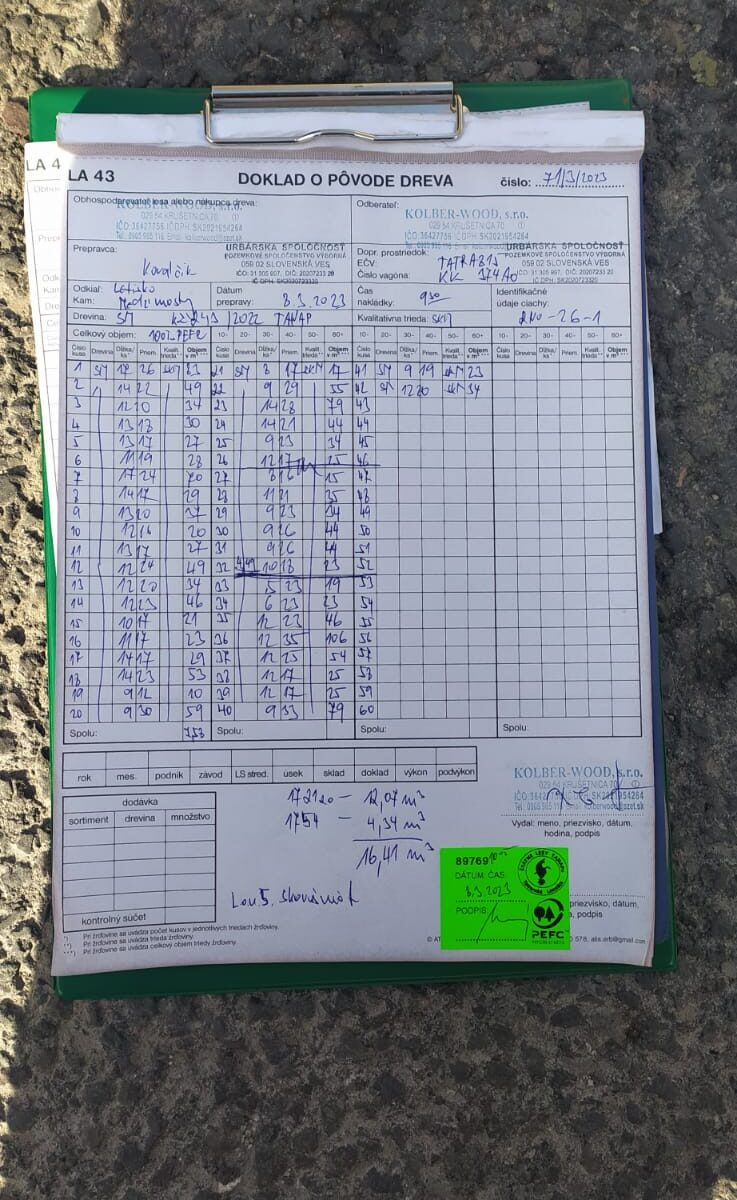 LA 43 DOKLAD O PÔVODE DREVA číslo: 71/3/2023
Obhospodarovateľ lesa alebo nákupca dreva:
KOLBER-WOOD, s.r.o.
029 54 KRUŠETNICA 70
IČO:36427756 IČ DPH: SK2021954264
Odberateľ:
KOLBER-WOOD, s.r.o.
029 54 KRUŠETNICA 70
IČO:36427756 IČDPH: SK2021954264
Prepravca: Kovalčík
URBÁRSKA SPOLOČNOSŤ
POZEMKOVÉ SPOLOČENSTVO VÝBORNÁ
059 02 SLOVENSKÁ VES
Dopr. prostriedok: TATRA 815
EČV:
Číslo vagóna: KK 374AO
URBÁRSKA SPOLOČNOSŤ
POZEMKOVÉ SPOLOČENSTVO VÝBORNÁ
059 02 SLOVENSKÁ VES
Odkiaľ:
Kam:
Dátum
prepravy: 8.3.2023
Čas
nakládky: 930
Identifikačné
údaje ciachy:
2NO-26-1
Drevina: SM /2022 TANAP
Kvalitatívna trieda:
Celkový objem: 100% PEFC
10- 20- 30- 40- 50- 60+ 10- 20- 30- 40- 50- 60+ 10- 20- 30- 40- 50- 60+
Číslo kusa Drevina Dĺžka/ks Priem. Kvalit. trieda Objem v m³
1 SM 26 83 21 SM 8 17 17 41 SM 9 19 23
2 14 22 49 22 9 29 55 42 SM 12 20 34
3 12 20 34 23 14 28 79 43
4 13 18 30 24 14 21 44 44
5 13 17 27 25 9 23 34 45
6 11 19 28 26 12 17 25 46
7 17 24 70 27 8 16 15 47
8 14 17 29 28 11 21 35 48
9 13 20 37 29 9 23 34 49
10 12 16 20 30 9 26 44 50
11 13 17 27 31 9 26 44 51
12 12 24 49 32 10 18 23 52
13 12 20 34 33 5 23 19 53
14 12 23 46 34 6 23 23 54
15 10 17 21 35 12 23 46 55
16 11 17 23 36 12 35 106 56
17 14 17 29 37 12 25 54 57
18 14 23 53 38 12 17 25 58
19 9 12 10 39 12 17 25 59
20 9 30 59 40 9 33 79 60
Spolu: 753 Spolu: Spolu: Spolu:
rok mes. podnik závod LS stred. úsek sklad doklad výkon podvýkon
dodávka
sortiment drevina množstvo
kontrolný súčet
172120 — 12,07 m³
1754 — 4,34 m³
16,41 m³
KOLBER-WOOD, s.r.o.
029 54 KRUŠETNICA 70
Vydal: meno, priezvisko, dátum,
hodina, podpis
89769
DÁTUM: ČAS:
8.3.2023
PODPIS:
PEFC
priezvisko, dátum,
podpis
Pri žrďovine sa uvádza počet kusov v jednotlivých triedach žrďoviny.
Pri žrďovine sa uvádza trieda žrďoviny.
Pri žrďovine sa uvádza celkový objem triedy žrďoviny.
LA 4